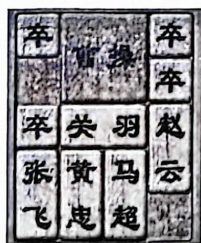 卒 曹操 卒
卒
卒 关羽 赵云
张飞 黄忠 马超